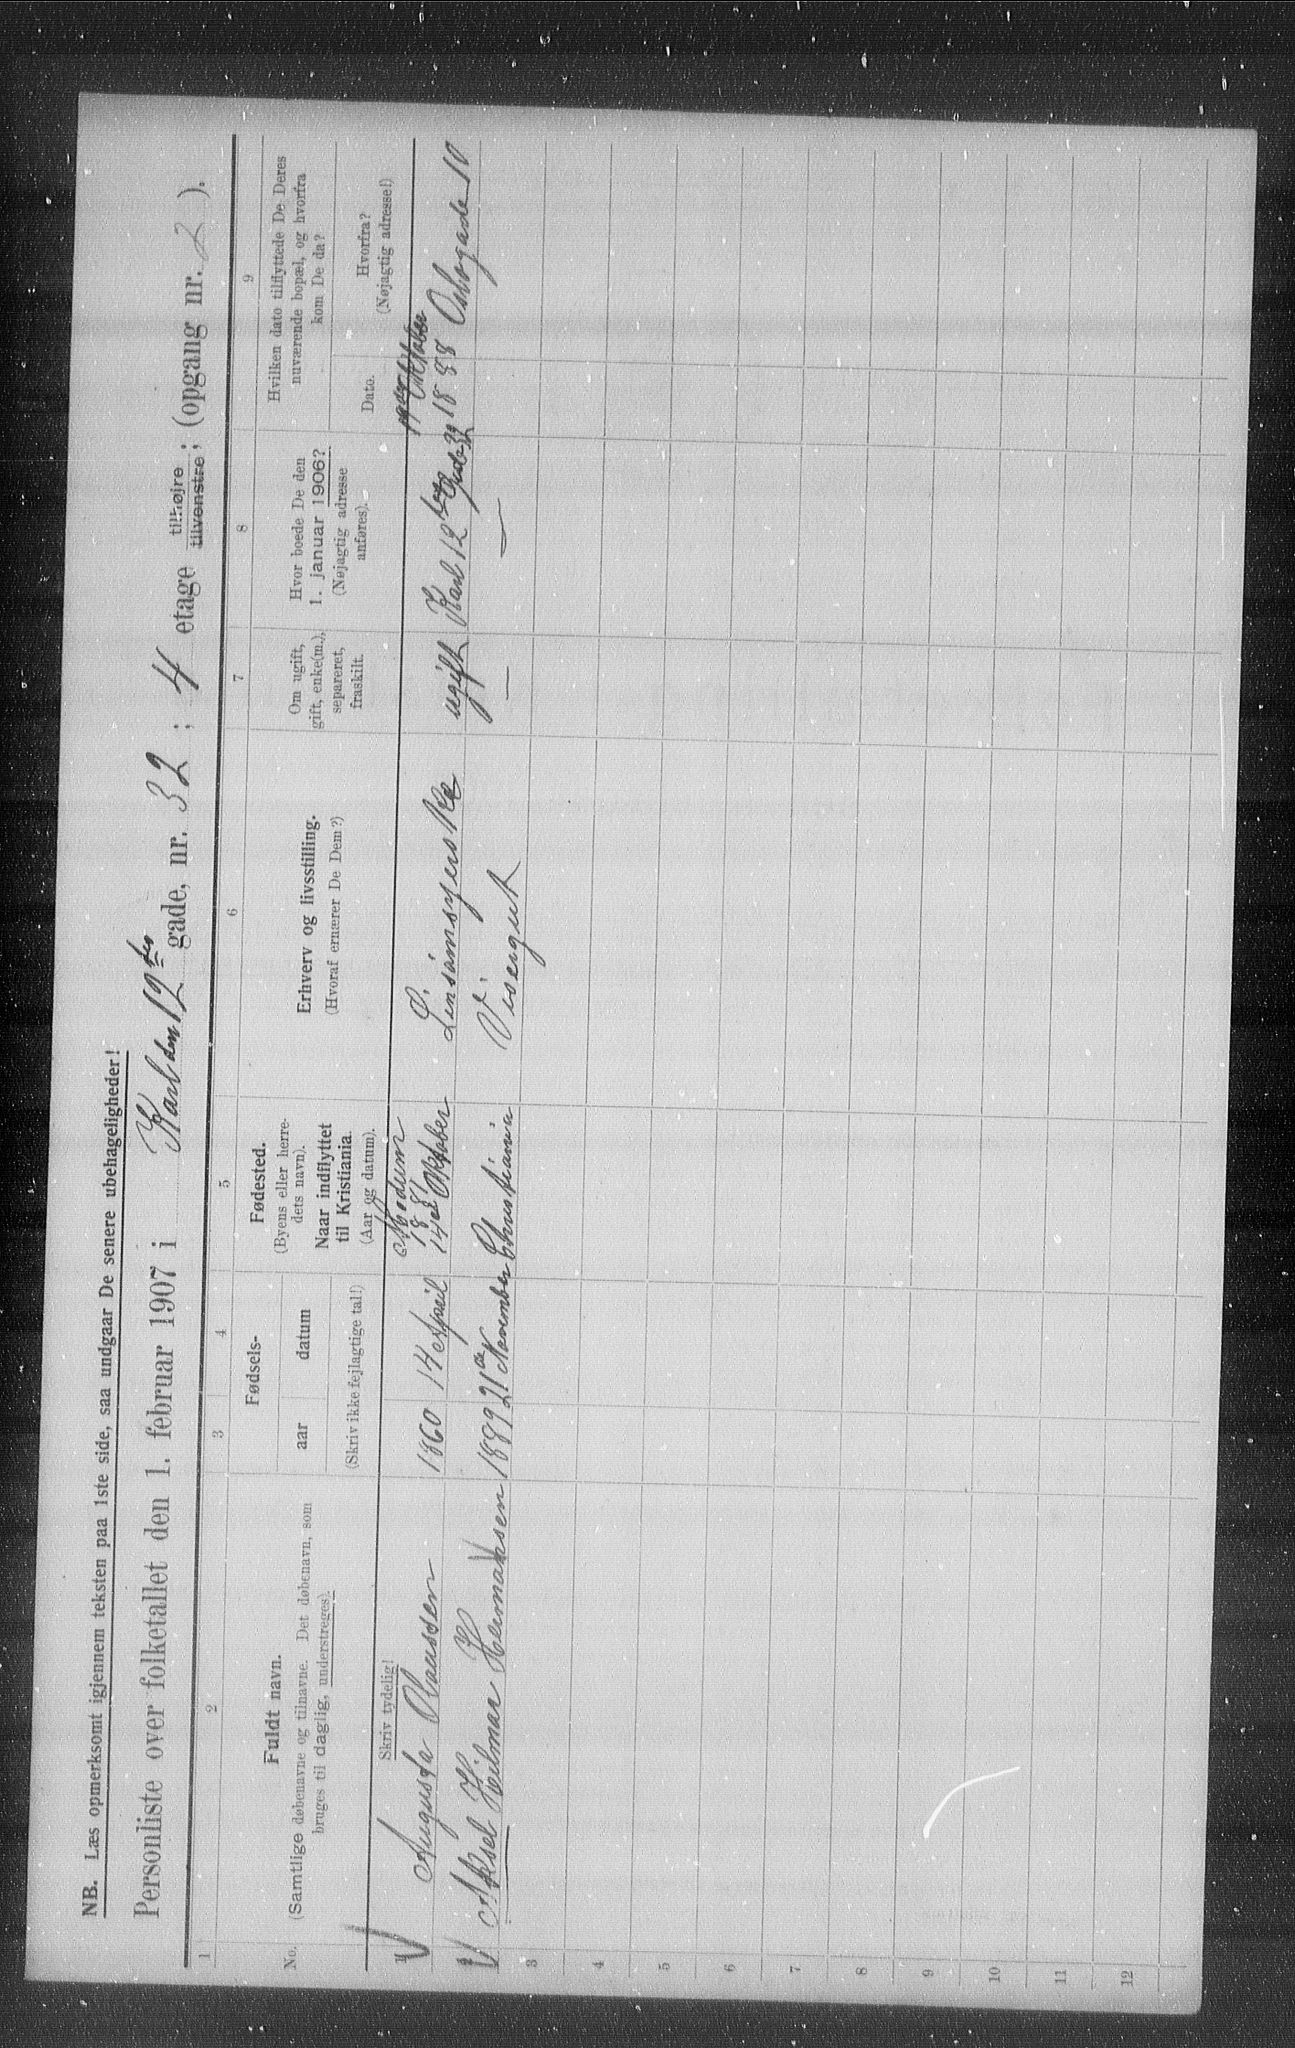 NB. Læs opmerksomt igjennem teksten paa 1ste side, saa undgaar De senere ubehageligheder!
Personliste over folketallet den 1. februar 1907 i Karl den 12te gade, nr. 32 ; 4 etage tilhøjre tilvenstre ; (opgang nr. 2 ).
1 2 3 4 5 6 7 8 9
No.
Fuldt navn.
(Samtlige døbenavne og tilnavne. Det døbenavn, som
bruges til daglig, understreges).
Skriv tydelig!
Fødsels-
aar datum
(Skriv ikke fejlagtige tal!)
Fødested.
(Byens eller herre-
dets navn).
Naar indflyttet
til Kristiania.
(Aar og datum).
Erhverv og livsstilling.
(Hvoraf ernærer De Dem?)
Om ugift,
gift, enke(m.),
separeret,
fraskilt.
Hvor boede De den
1. januar 1906?
(Nøjagtig adresse
anføres).
Hvilken dato tilflyttede De Deres
nuværende bopæl, og hvorfra
kom De da?
Dato.
Hvorfra?
(Nøjagtig adresse!)
1 Augusta Olaussen 1860 14 April Modum 1881 14de Oktober Linsømsyerske ugift Karl 12tes Gade 32 Oktober 1888 Oslogade 10
2 Aksel Hilmar Hermansen 1889 21de November Christiania Visergut — —
3
4
5
6
7
8
9
10
11
12